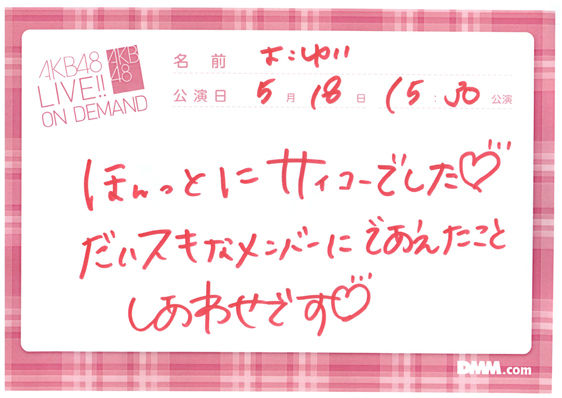 AKB48
LIVE!!
ON DEMAND
AKB
48
名前 よこゆい
公演日 5月18日 15:30 公演
ほんっとに サイコーでした♡
だいスキなメンバーにであえたこと
しあわせです♡
DMM.com